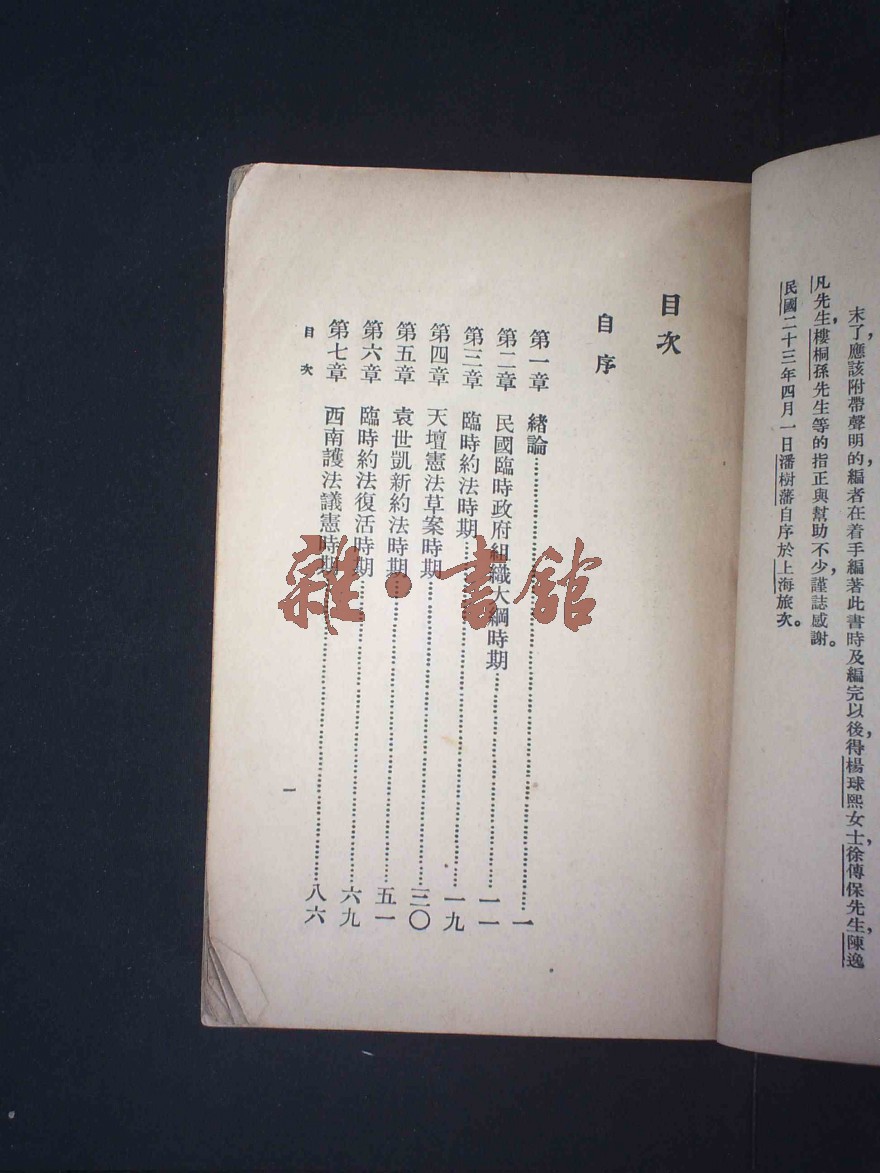 末了，應該附帶聲明的，編者在着手編著此書時及編完以後，得楊球熙女士，徐傳保先生，陳逸
凡先生，樓桐孫先生等的指正與幫助不少，謹誌感謝。
民國二十三年四月一日潘樹藩自序於上海旅次。
目次
自序
第一章 緒論……一
第二章 民國臨時政府組織大綱時期……一一
第三章 臨時約法時期……一九
第四章 天壇憲法草案時期……三〇
第五章 袁世凱新約法時期……五一
第六章 臨時約法復活時期……六九
第七章 西南護法議憲時期……八六
目次
一
雜·書館